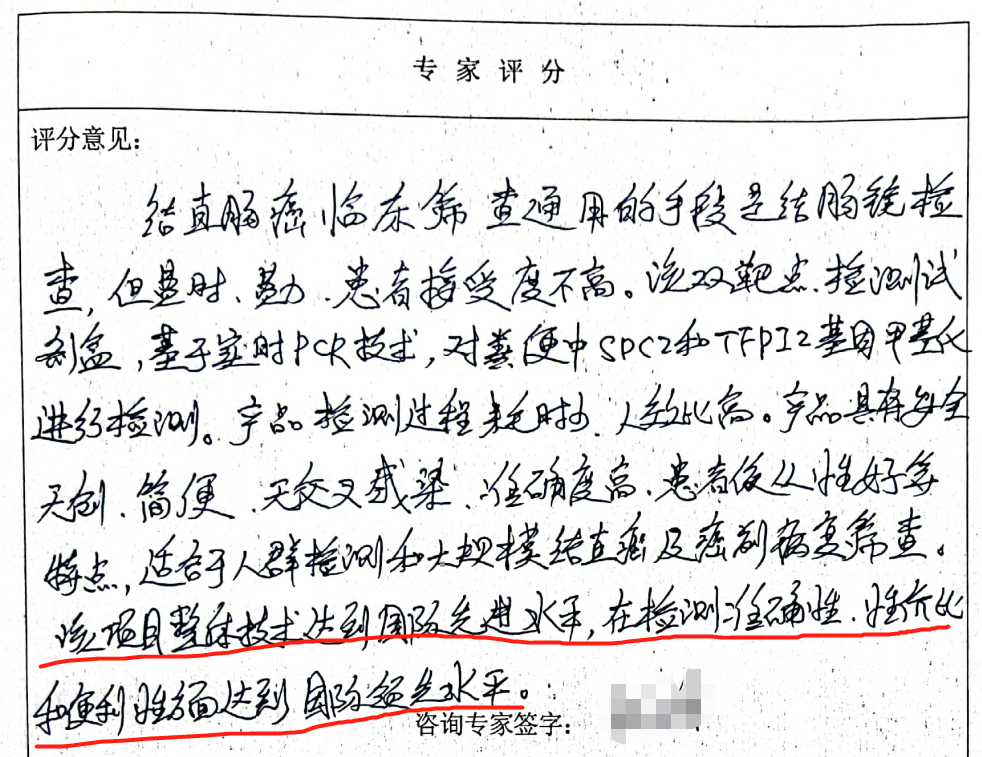 专家评分
评分意见:
结直肠癌临床筛查通用的手段是结肠镜检
查,但费时、费力、患者接受度不高。该双靶点检测试
剂盒,基于实时PCR技术,对粪便中SDC2和TFPI2基因甲基化
进行检测。产品检测过程耗时少、人效比高。产品具有安全
无创、简便、无交叉感染、准确度高、患者依从性好等
特点,适合于人群检测和大规模结直癌及癌前病变筛查。
该项目整体技术达到国际先进水平,在检测准确性、性价比
和便利性方面达到国际领先水平。
咨询专家签字: